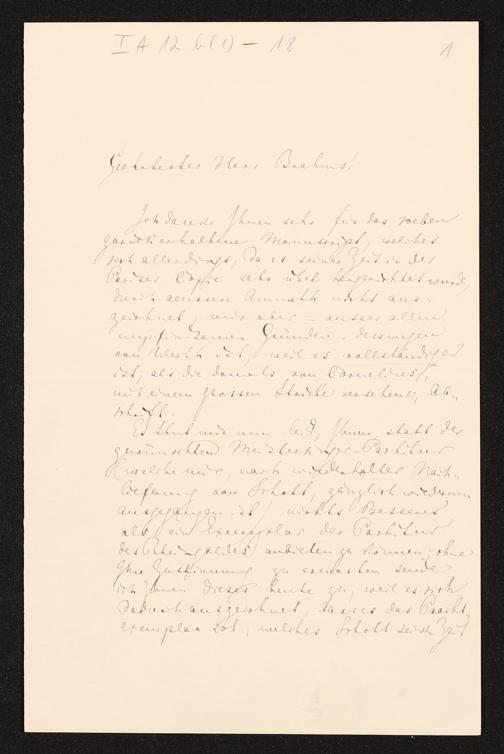 I A 12 b(1) – 18
1
Geehrtester Herr Brahms!
Ich danke Ihnen sehr für das soeben
zurückerhaltene Manuscript, welches
sich allerdings, da es seiner Zeit in der
Pariser Copie sehr übel hergerichtet wurde,
durch aeussere Anmuth nicht aus-
zeichnet, mir aber – ausser allen
Gründen – desswegen
von Werth ist, weil es vollständiger
ist, als die damals von Cornelius,
mit einem grossen Striche versehene, Ab-
schrift.
Es thut mir nun leid, Ihnen statt der
gewünschten Meistersinger-Partitur
(welche mir, nach wiederholter Nach-
lieferung von Schott, gänzlich wiederum
ausgegangen ist) nichts Besseres
als ein Exemplar der Partitur
des Rheingoldes anbieten zu können; ohne
Ihre Zustimmung zu erwarten sende
ich Ihnen dieses heute zu, weil es sich
dadurch auszeichnet, dass es das Pracht-
exemplar ist, welches Schott seiner Zeit